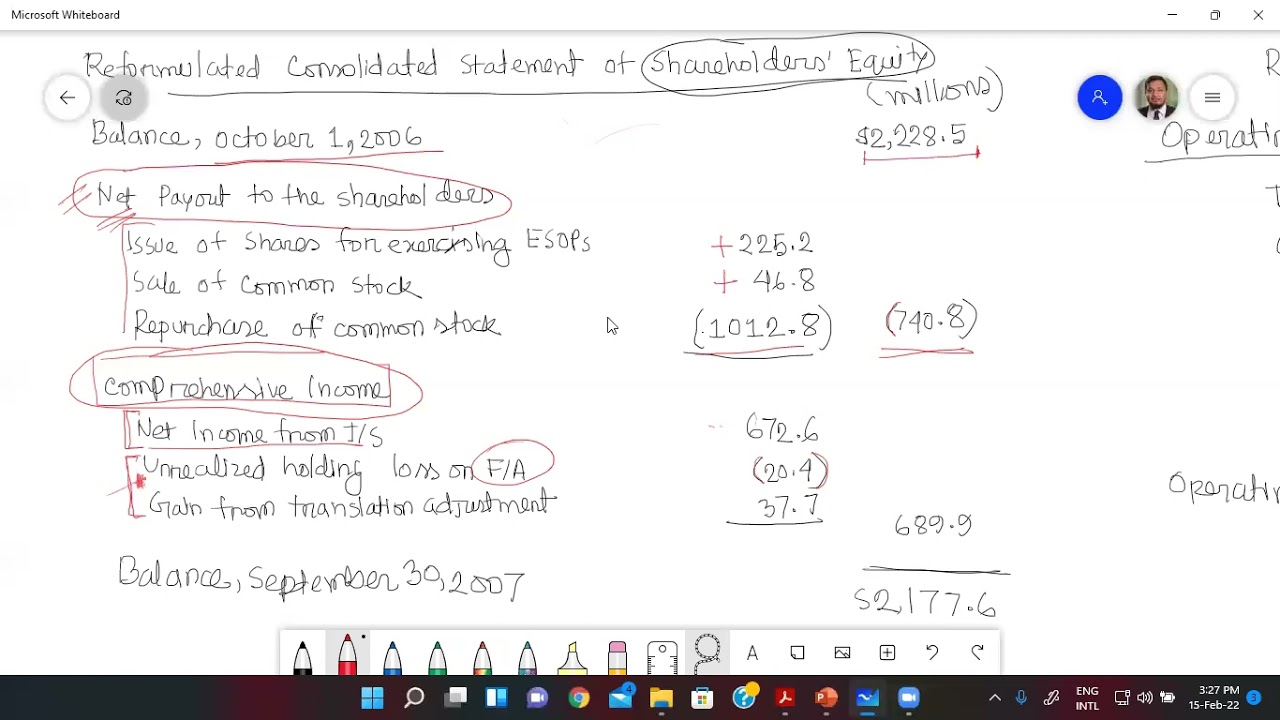 Microsoft Whiteboard
Reformulated Consolidated Statement of Shareholders' Equity
(millions)
Balance, october 1,2006 $2,228.5
Operatin
Net Payout to the shareholders
Issue of shares for exercising ESOPs +225.2
Sale of common stock +46.8
Repurchase of common stock (1012.8) (740.8)
Comprehensive Income
Net Income from I/S 672.6
Unrealized holding loss on F/A (20.4)
Gain from translation adjustment 37.7
Operatin
689.9
Balance, September 30,2007 $2,177.6
A
4
ENG
INTL
3:27 PM
15-Feb-22
3